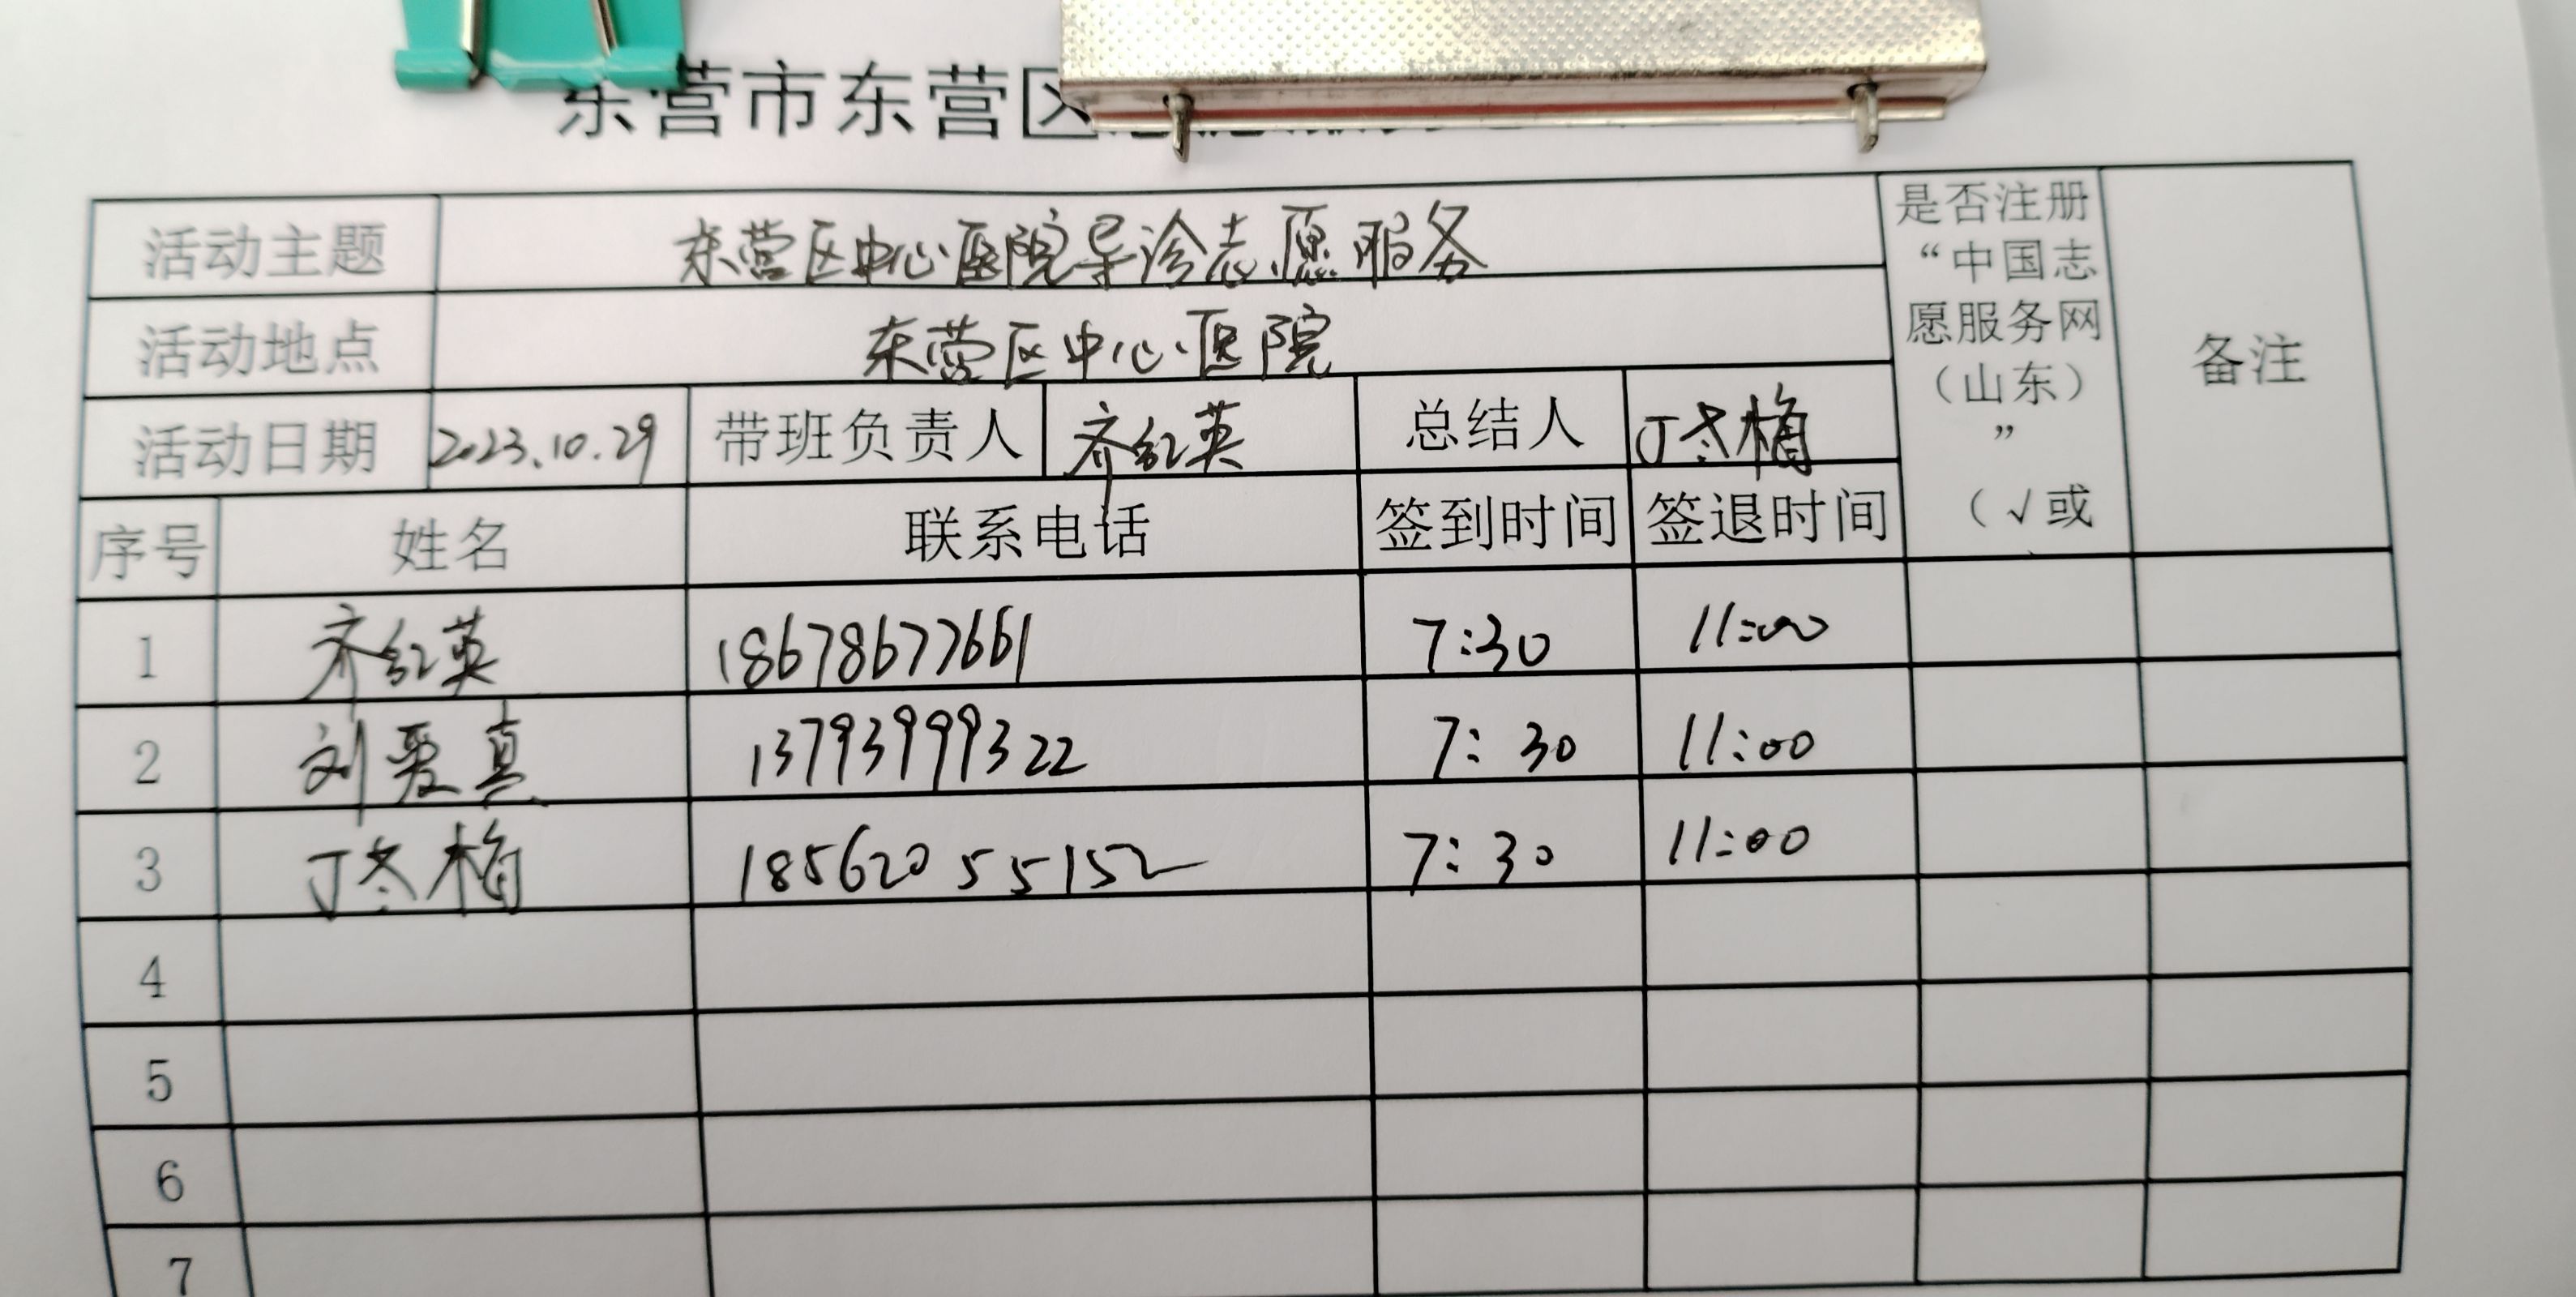 东营市东营区
活动主题 东营区中心医院导诊志愿服务
活动地点 东营区中心医院
活动日期 2023.10.29 带班负责人 齐红英 总结人 丁冬梅
是否注册
“中国志
愿服务网
（山东）
”
（√或
备注
序号 姓名 联系电话 签到时间 签退时间
1 齐红英 18678677661 7:30 11:00
2 刘爱真 13793999322 7:30 11:00
3 丁冬梅 18562055152 7:30 11:00
4
5
6
7